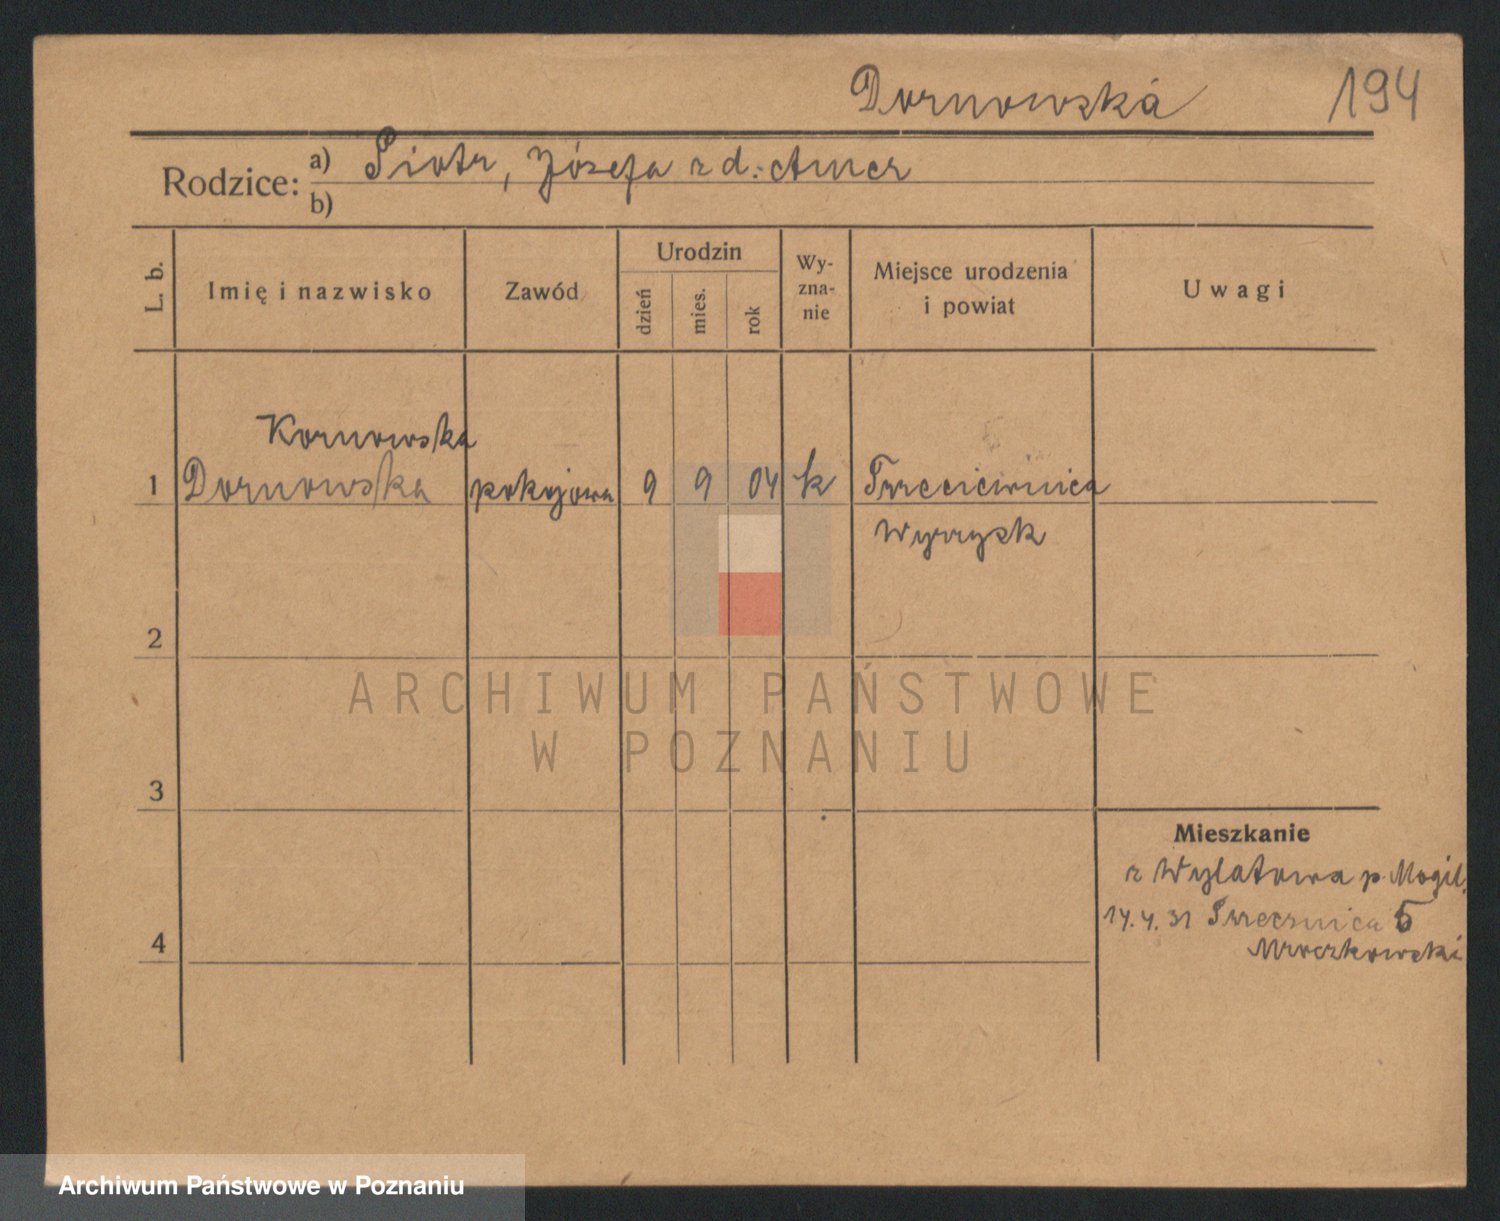 Dornowska 194
Rodzice: a) Piotr, Józefa z d.: Amer
b)
L. b. Imię i nazwisko Zawód Urodzin dzień mies. rok Wy-zna-nie Miejsce urodzenia i powiat Uwagi
Kornowska
1 Dornowska pokojowa 9 9 04 k Trzeciewnica
Wyrzysk
2
ARCHIWUM PAŃSTWOWE
W POZNANIU
3
Mieszkanie
z Wylatowa p. Mogil.
4 14.4.31 5
Mroczkowski
Archiwum Państwowe w Poznaniu